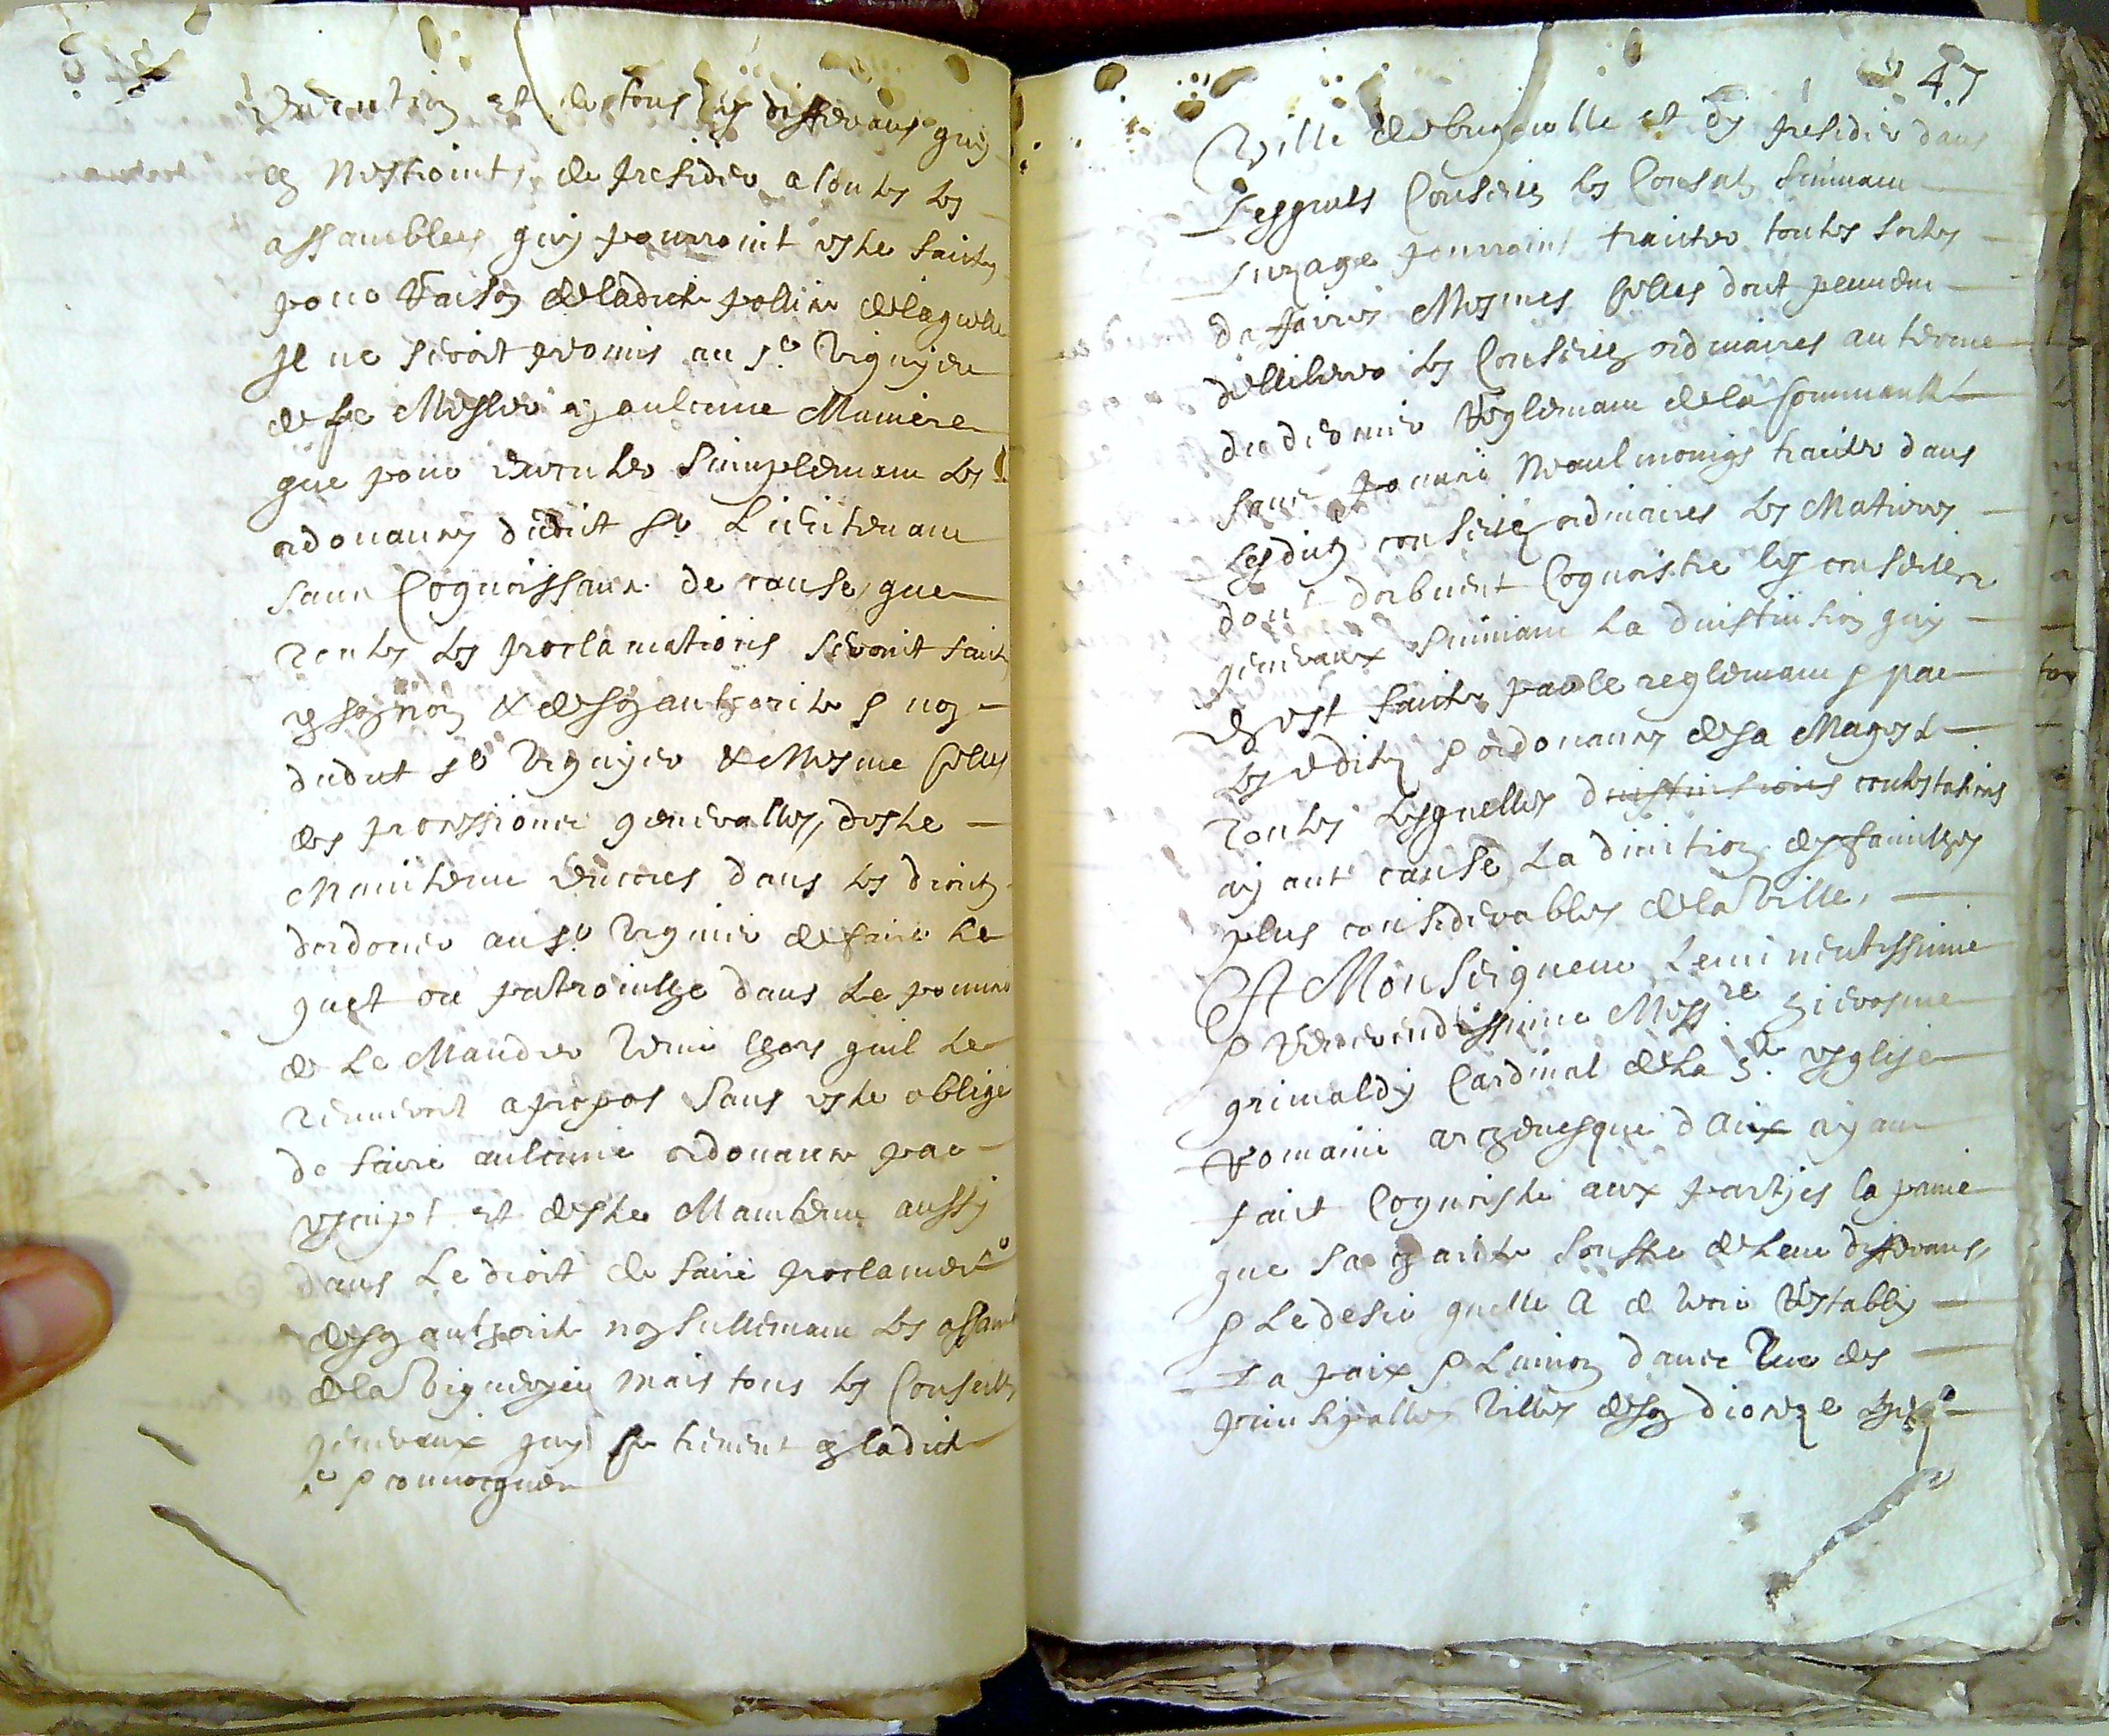 execution et de tous les differans quy
en nestroint, de presider a toutes les
assamblees quy pourroint estre faictes
pour raison de ladicte pollice de laquelle
Il ne seroit promis au sr viguyer
de se mesler en aulcune maniere
que pour executer simplemant les
ordonances dudict sr Lieutenant
sans cognoissance de cause, que
toutes les proclamations seroint faictes
en son nom & de son authorite & non
dudict sr viguyer & mesme celles
des processions generalles, destre
maintenu encores dans les droits
dordoner au sr viguier de faire le
guet ou patrouilhe dans le pouvoir
de le mander venir lhors quil le
treuveroit apropos sans estre oblige
de faire aulcune ordonance par
escript et destre maintenu aussy
dans le droit de faire proclamer
de son authorite non sullemant les assam
de la viguerye mais tous les conseils
generaux quy se tienent en ladicte
& convocquer
47
Ville de brignolle et dy presider dans
lesquels conseils les consuls suivant
lusage pourroint traiter toutes sortes
daffaires mesmes celles dont peuvent
delliberer les conseils ordinaires au terme
du dernier reglemant de la communaute
sans pouvoir neaulmoings traiter dans
lesdicts conseils ordinaires les matieres
dont doibvent cognoistre les conseils
generaux suivant la dinstinction quy
en est faicte par le reglemant & par
les edits & ordonances de sa magesté
toutes lesquelles dinstinctions contestations
ayant causé la division des familhes
plus considerables de la ville,
Et Monseigneur Leminentissime
& reverendissime messre hierosme
grimaldy cardinal de la ste esglise
romaine archevesque daix ayant
faict cognoistre aux partyes la paine
que sa charité souffre de leur differans,
& le desir quelle a de voir restably
la paix & lunion dans lune des
principalles villes de son dioceze